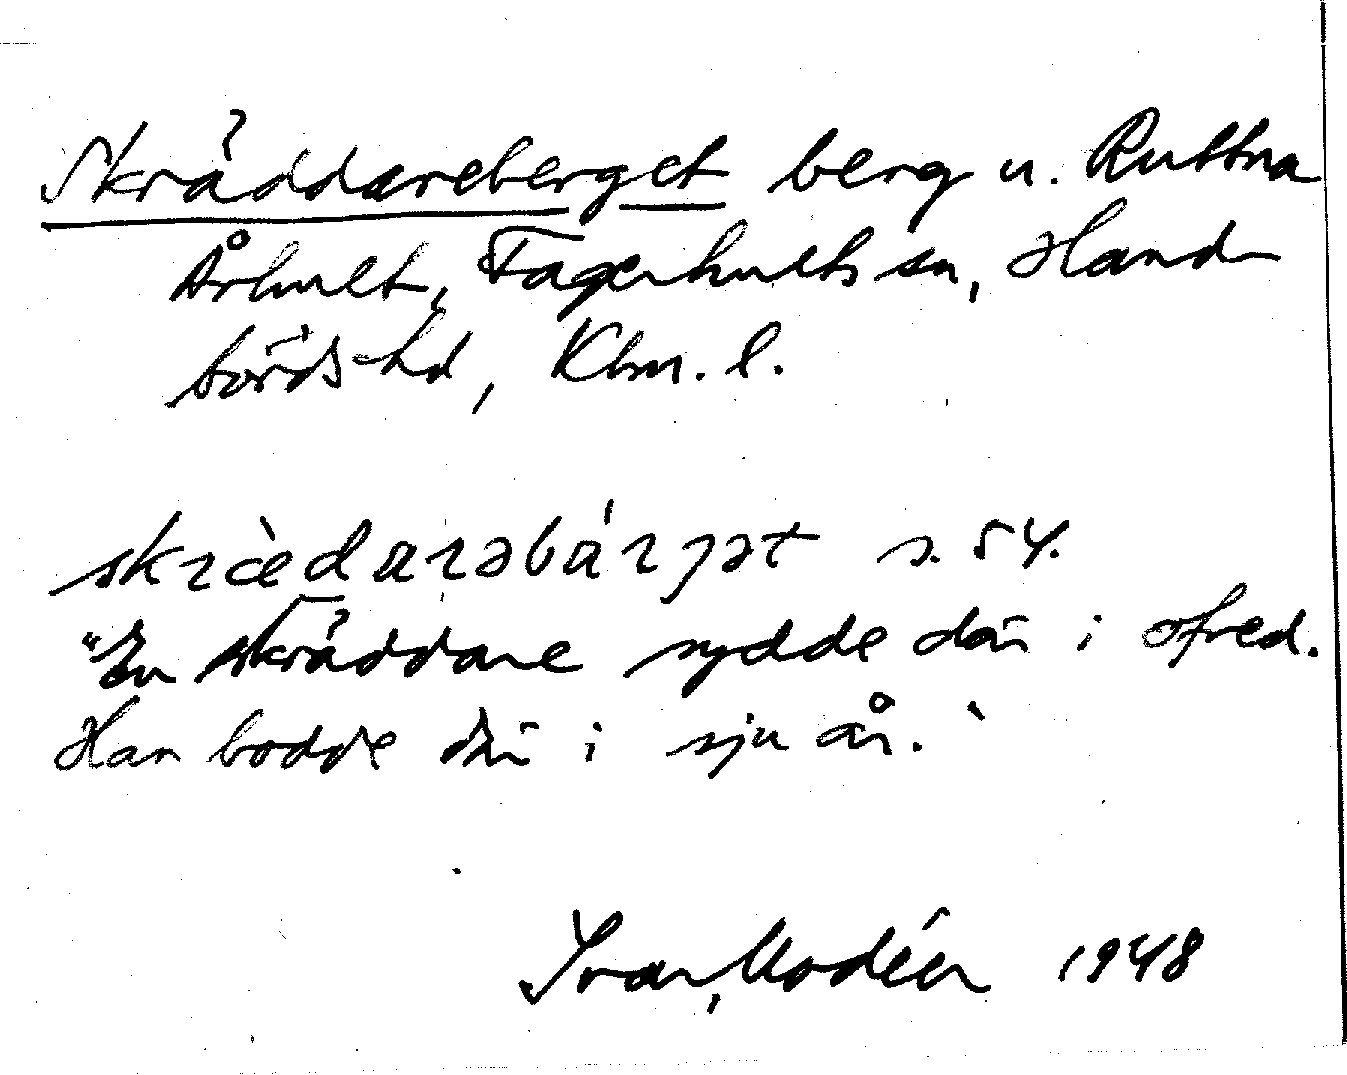 Skräddareberget berg u. Ruttna
Århult, Fagerhults sn, Hand
börds hd, Klm. l.
skræ̀darəbárjət s. 54.
"En skräddare sydde där i ofred.
Han bodde där i sju år."
Ivar Modéer 1948